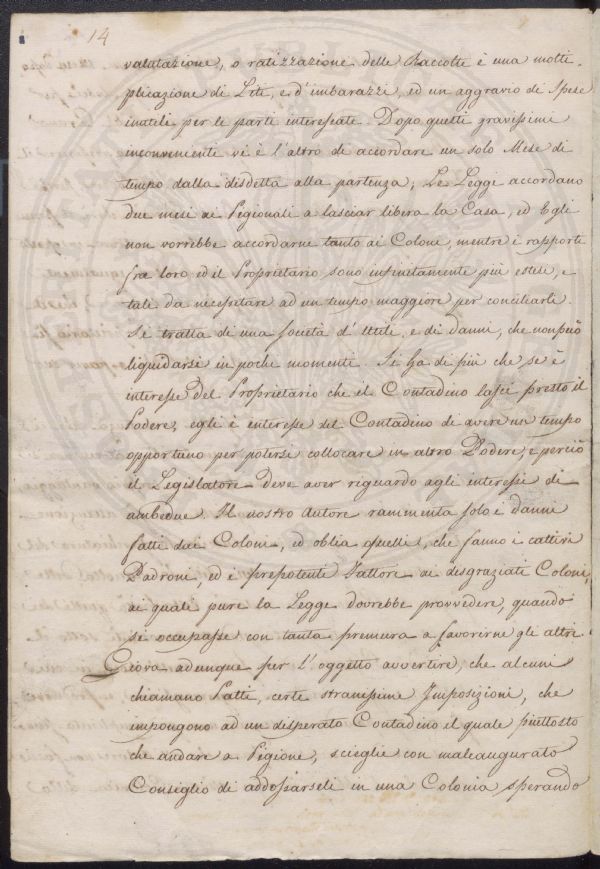 14
valutazione, o ratizzazione delle Raccolte è una molti-
plicazione di Liti, e d'imbarazzi, ed un aggravio di Spese
inutili per le parti interessate. Dopo questi gravissimi
inconvenienti vi è l'altro di accordare un solo Mese di
tempo dalla disdetta alla partenza; Le Leggi accordano
due mesi ai Pigionali a lasciar libera la Casa, ed Egli
non vorrebbe accordarne tanto ai Coloni, mentre i rapporti
fra loro, ed il Proprietario sono infinitamente più estesi, e
tali da necessitare ad un tempo maggiore per conciliarli.
Si tratta di una società d'Utili, e di danni, che non può
liquidarsi in pochi momenti. Si ha di più che se è
interesse del Proprietario che il Contadino lasci presto il
Podere, egli è interesse del Contadino di avere un tempo
opportuno per potersi collocare in altro Podere, e perciò
il Legislatore deve aver riguardo agli interessi di
ambedue. Il nostro Autore rammenta solo i danni
fatti dai Coloni, ed oblia quelli, che fanno i cattivi
Padroni, ed i prepotenti Fattori ai disgraziati Coloni,
ai quali pure la Legge dovrebbe provvedere, quando
si occupasse con tanta premura a favorirne gli altri.
Giova adunque per l'oggetto avvertire, che alcuni
chiamano Patti, certe stranissime Imposizioni, che
impongono ad un disperato Contadino il quale piuttosto
che andare a Pigione, scieglie con malaugurato
Consiglio di addossarseli in una Colonia sperando